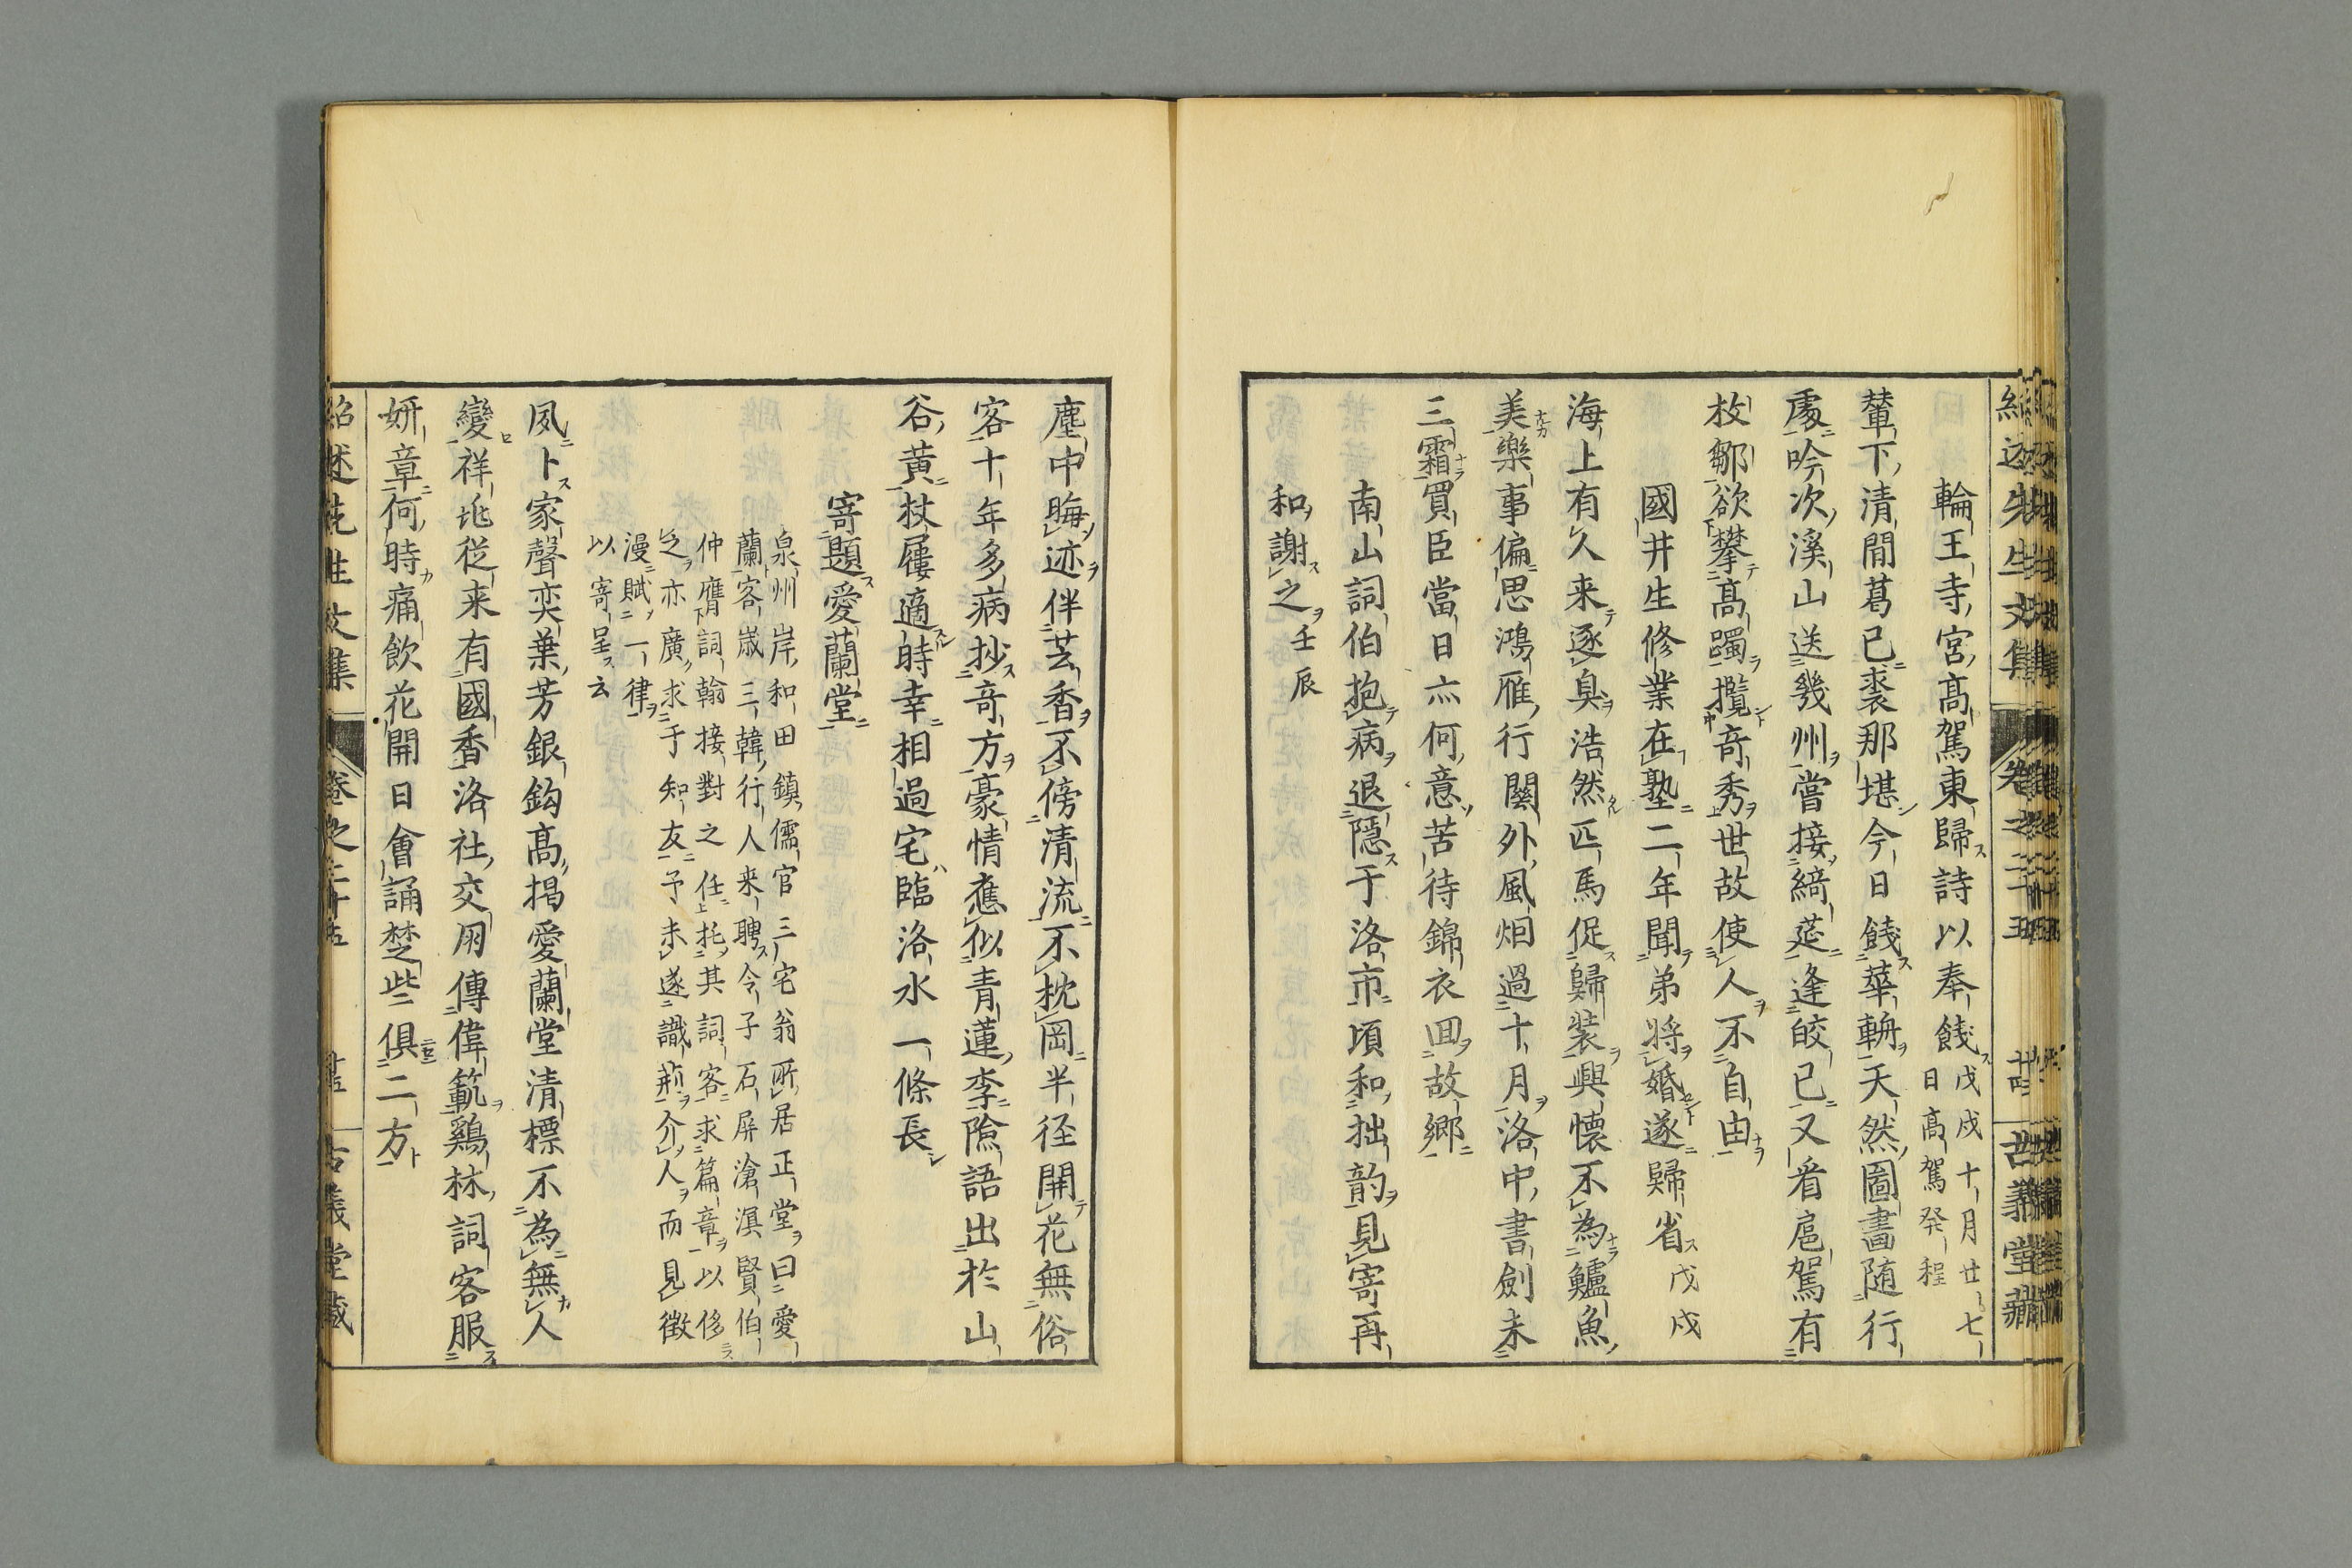 輪王寺宮髙駕東歸詩以奉餞戊戌十月廿七
日髙駕發程
輦下清閒葛已裘那堪今日餞華輈天然圖畫随行
處吟次溪山送幾州嘗接綺莚逢皎已又看扈駕有
枚鄒欲攀髙躅攬竒秀世故使人不自由
國井生修業在塾二年聞弟将婚遂歸省戊戌
海上有人来逐臭浩然匹馬促歸装興懐不為鱸魚
美樂事偏思鴻雁行關外風烟過十月洛中書劍未
三霜買臣當日亦何意苦待錦衣囬故郷
南山詞伯抱病退隠于洛市頃和拙韵見寄再
和謝之壬辰
塵中晦迹伴芸香不傍清流不枕岡半径開花無俗
客十年多病抄竒方豪情應似青蓮李險語出於山
谷黄杖屨適時幸相過宅臨洛水一條長
寄題愛蘭堂
泉州岸和田鎮儒官三宅翁所居正堂曰愛
蘭客歳三韓行人来聘令子石屏滄溟賢伯
仲膺詞翰接對之任托其詞客求篇章以侈
之亦廣求于知友予未遂識荊介人而見徴
漫賦一律
以寄呈云
夙卜家聲奕葉芳銀鈎髙掲愛蘭堂清標不為無人
變祥兆従来有國香洛社交朋傳偉範鷄林詞客服
妍章何時痛飲花開日會誦楚些俱二方
紹述先生文集
卷之二十五
廿五
古義堂藏